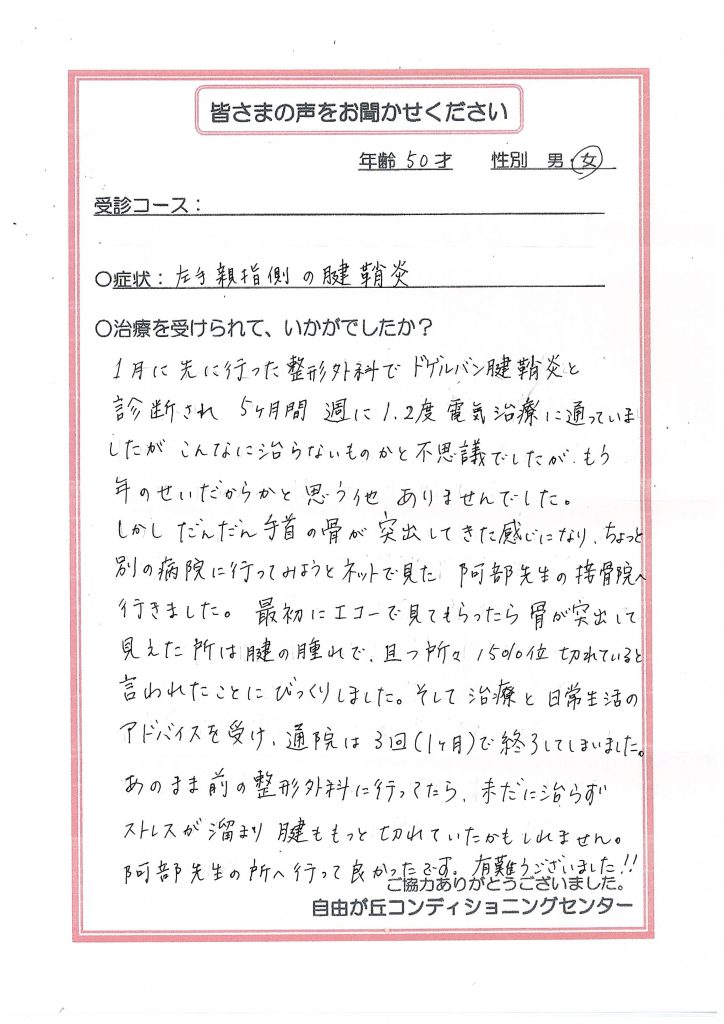 皆さまの声をお聞かせください
年齢 50才 性別 男・女
受診コース：
○症状：左手親指側の腱鞘炎
○治療を受けられて、いかがでしたか？
1月に先に行った整形外科でドゲルバン腱鞘炎と
診断され 5ヶ月間 週に1.2度電気治療に通っていま
したが こんなに治らないものかと不思議でしたが、もう
年のせいだからかと思う他 ありませんでした。
しかし だんだん手首の骨が突出してきた感じになり、ちょっと
別の病院に行ってみようとネットで見た 阿部先生の接骨院へ
行きました。最初にエコーで見てもらったら骨が突出して
見えた所は腱の腫れで、且つ所々 150%位 切れていると
言われたことにびっくりしました。そして治療と日常生活の
アドバイスを受け、通院は3回(1ヶ月)で終了してしまいました。
あのまま前の整形外科に行ってたら、未だに治らず
ストレスが溜まり 腱ももっと切れていたかもしれません。
阿部先生の所へ行って良かったです。有難うございました!!
ご協力ありがとうございました。
自由が丘コンディショニングセンター